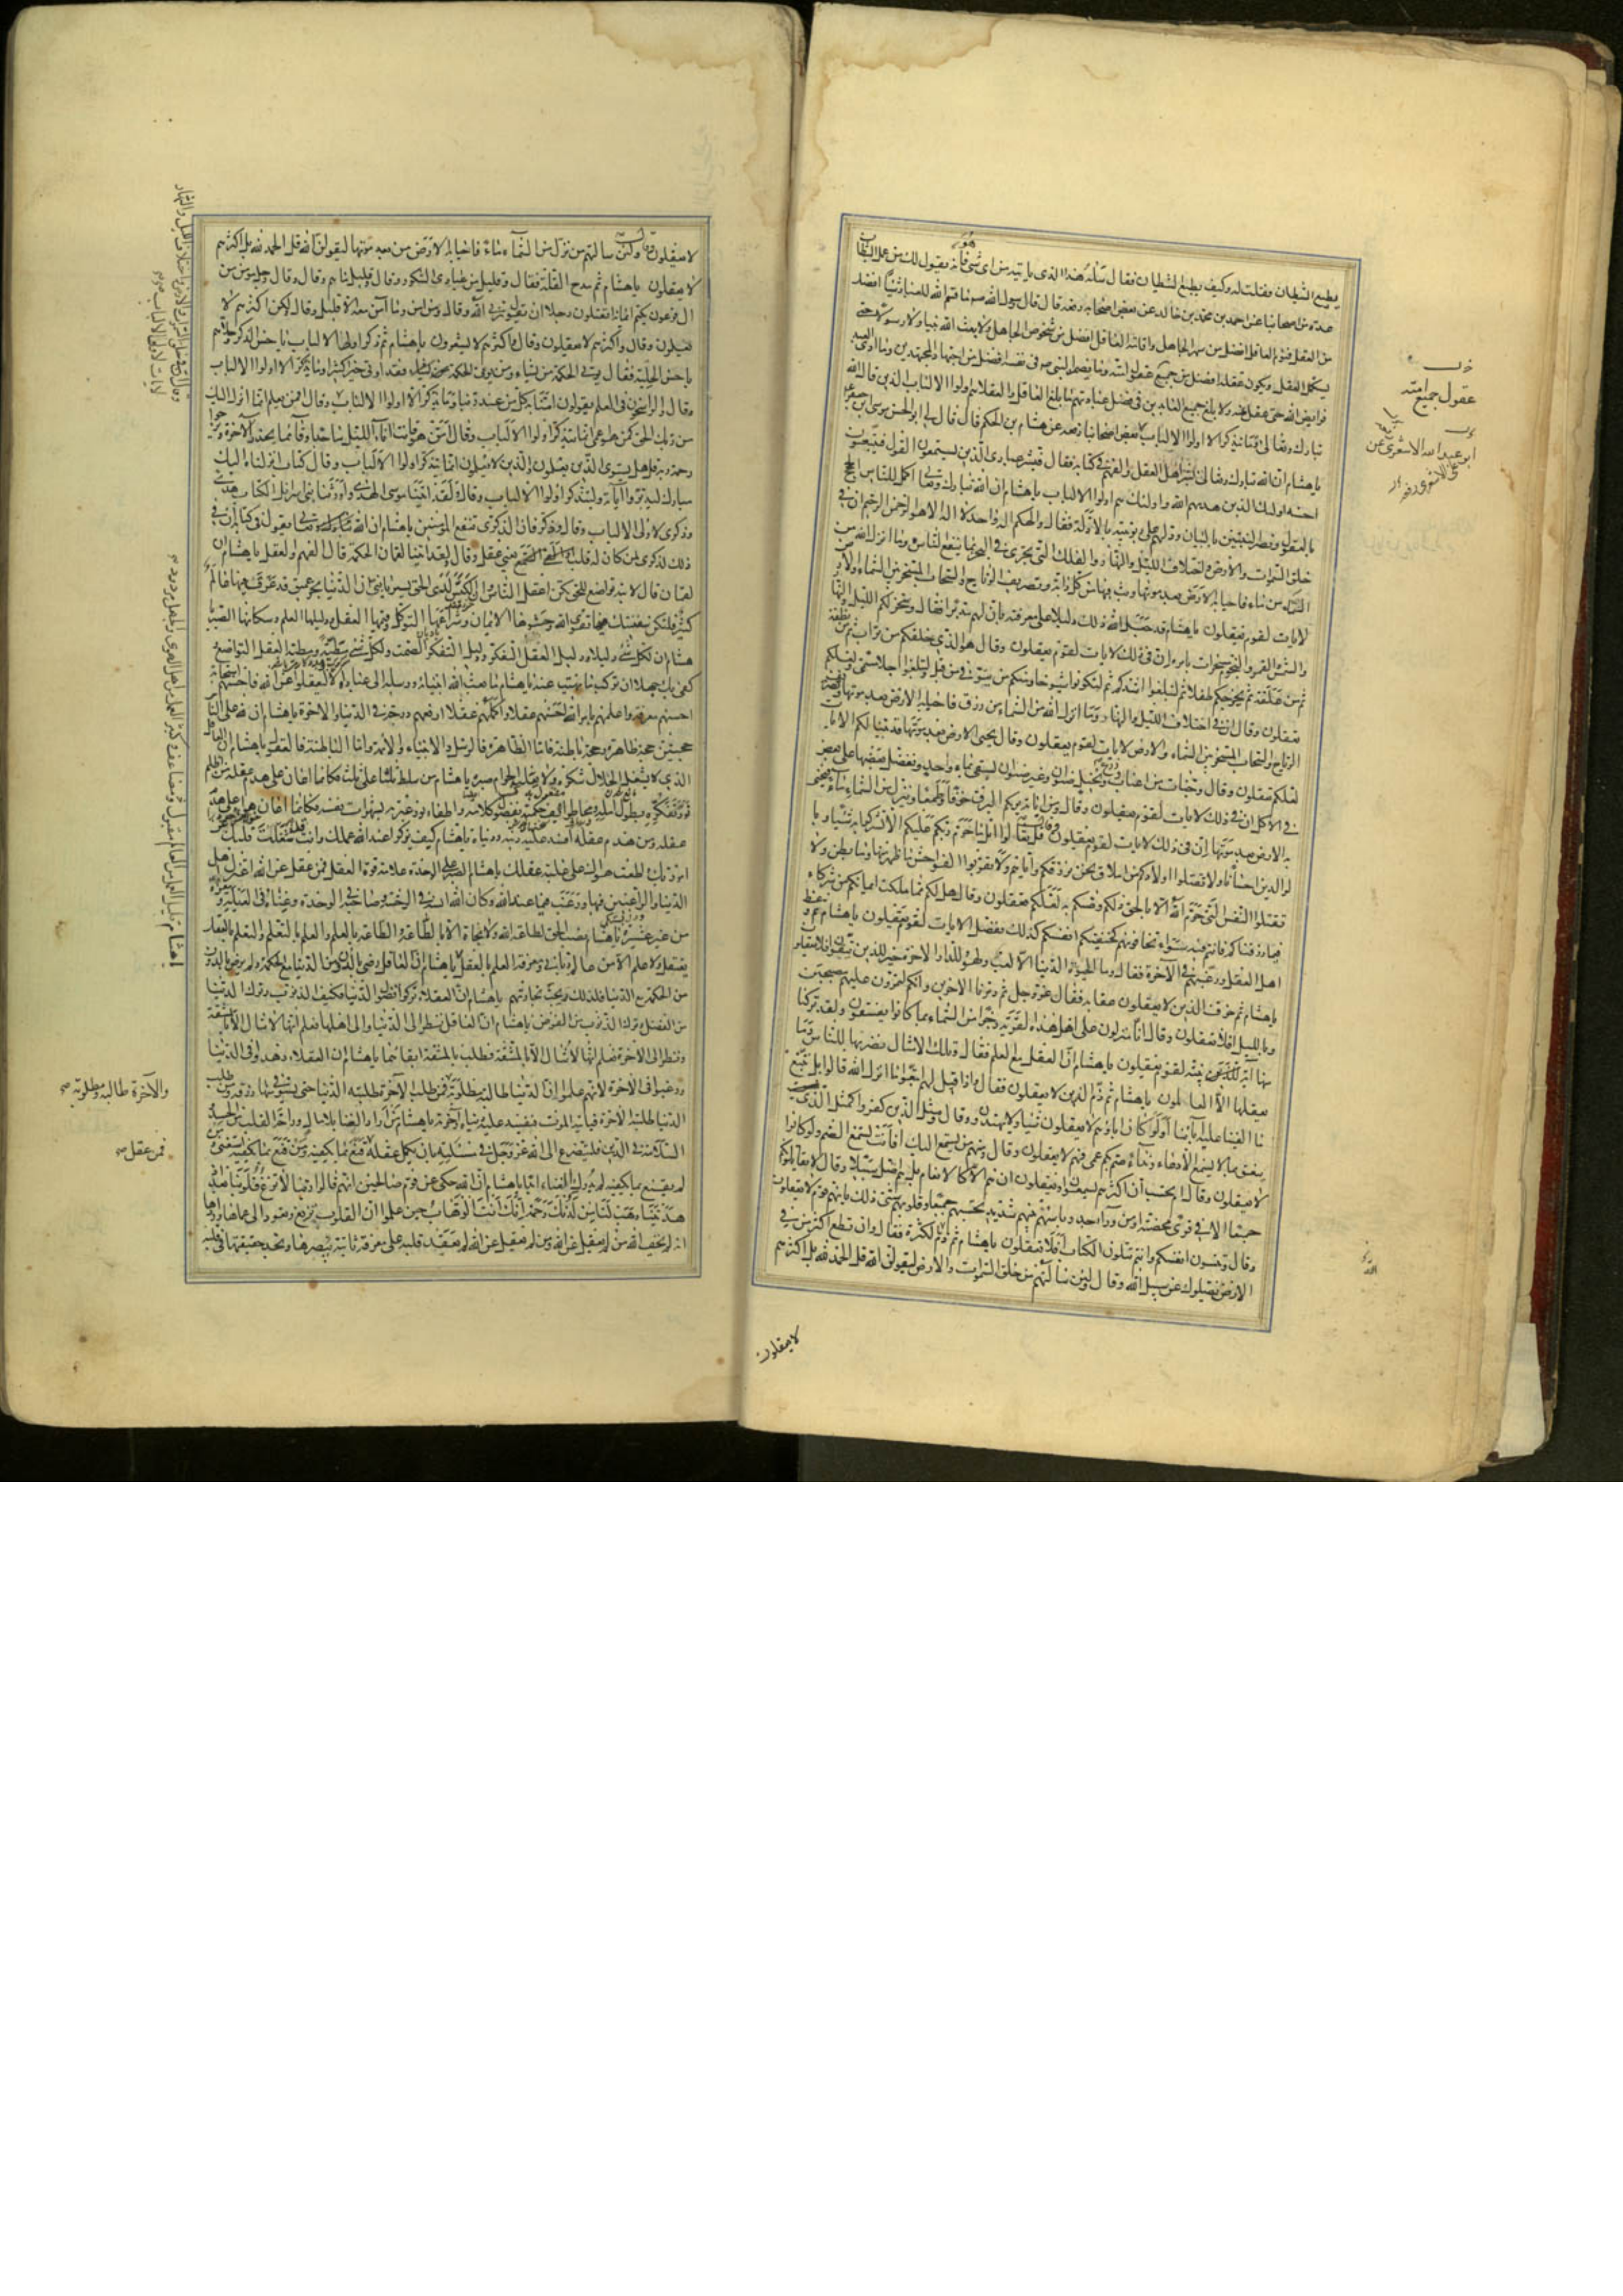 يطيع الشيطان فقلت له وكيف يطيع الشيطان فقال سله هذا الذي ياتيه من اي شئ هو فانه يقول لك من عمل الشيطان
عدة من اصحابنا عن احمد بن محمد بن خالد عن بعض اصحابه رفعه قال قال رسول الله ص ما قسم الله للعباد شيئا افضل
من العقل فنوم العاقل افضل من سهر الجاهل واقامة العاقل افضل من شخوص الجاهل ولا بعث الله نبيا ولا رسولا حتى
يستكمل العقل ويكون عقله افضل من جميع عقول امته وما يضمر النبي ص في نفسه افضل من اجتهاد المجتهدين وما ادى العبد
فرايض الله حتى عقل عنه ولا بلغ جميع العابدين في فضل عبادتهم ما بلغ العاقل والعقلاء هم اولوا الالباب الذين قال الله
تبارك وتعالى وما يتذكر الا اولوا الالباب بعض اصحابنا رفعه عن هشام بن الحكم قال قال لي ابو الحسن موسى بن جعفر
يا هشام ان الله تبارك وتعالى بشر اهل العقل والفهم في كتابه فقال فبشر عبادي الذين يستمعون القول فيتبعون
احسنه اولئك الذين هديهم الله واولئك هم اولوا الالباب يا هشام ان الله تبارك وتعالى اكمل للناس الحجج
بالعقول ونصر النبيين بالبيان ودلهم على ربوبيته بالادلة فقال والهكم اله واحد لا اله الا هو الرحمن الرحيم ان في
خلق السموات والارض واختلاف الليل والنهار والفلك التي تجري في البحر بما ينفع الناس وما انزل الله من
السماء من ماء فاحيا به الارض بعد موتها وبث فيها من كل دابة وتصريف الرياح والسحاب المسخر بين السماء والارض
لايات لقوم يعقلون يا هشام قد جعل الله ذلك دليلا على معرفته بان لهم مدبرا فقال وسخر لكم الليل والنهار
والشمس والقمر والنجوم مسخرات بامره ان في ذلك لايات لقوم يعقلون وقال هو الذي خلقكم من تراب ثم من نطفة
ثم من علقة ثم يخرجكم طفلا ثم لتبلغوا اشدكم ثم لتكونوا شيوخا ومنكم من يتوفى من قبل ولتبلغوا اجلا مسمى ولعلكم
تعقلون وقال ان في اختلاف الليل والنهار وما انزل الله من السماء من رزق فاحيا به الارض بعد موتها وتصريف
الرياح والسحاب المسخر بين السماء والارض لايات لقوم يعقلون وقال يحيى الارض بعد موتها قد بينا لكم الايات
لعلكم تعقلون وقال وجنات من اعناب وزرع ونخيل صنوان وغير صنوان يسقى بماء واحد ونفضل بعضها على بعض
في الاكل ان في ذلك لايات لقوم يعقلون وقال ومن اياته يريكم البرق خوفا وطمعا وينزل من السماء ماء فيحيى
به الارض بعد موتها ان في ذلك لايات لقوم يعقلون وقال قل تعالوا اتل ما حرم ربكم عليكم الا تشركوا به شيئا وبا
لوالدين احسانا ولا تقتلوا اولادكم من املاق نحن نرزقكم واياهم ولا تقربوا الفواحش ما ظهر منها وما بطن ولا
تقتلوا النفس التي حرم الله الا بالحق ذلكم وصيكم به لعلكم تعقلون وقال هل لكم مما ملكت ايمانكم من شركاء
فيما رزقناكم فانتم فيه سواء تخافونهم كخيفتكم انفسكم كذلك نفصل الايات لقوم يعقلون يا هشام ثم وعظ
اهل العقل ورغبهم في الآخرة فقال وما الحيوة الدنيا الا لعب ولهو وللدار الاخرة خير للذين يتقون افلا تعقلون
يا هشام ثم خوف الذين لا يعقلون عقابه فقال عز وجل ثم دمرنا الاخرين وانكم لتمرون عليهم مصبحين
وبالليل افلا تعقلون وقال انا منزلون على اهل هذه القرية رجزا من السماء بما كانوا يفسقون ولقد تركنا
منها آية بينة لقوم يعقلون يا هشام ان العقل مع العلم فقال وتلك الامثال نضربها للناس وما
يعقلها الا العالمون يا هشام ثم ذم الذين لا يعقلون فقال واذا قيل لهم اتبعوا ما انزل الله قالوا بل نتبع
ما الفينا عليه آباءنا اولو كان اباؤهم لا يعقلون شيئا ولا يهتدون وقال ومثل الذين كفروا كمثل الذي
ينعق بما لا يسمع الا دعاء ونداء صم بكم عمي فهم لا يعقلون وقال ومنهم من يستمع اليك افانت تسمع الصم ولو كانوا
لا يعقلون وقال ام تحسب ان اكثرهم يسمعون او يعقلون ان هم الا كالانعام بل هم اضل سبيلا وقال لا يقاتلونكم
جميعا الا في قرى محصنة او من وراء جدر باسهم بينهم شديد تحسبهم جميعا وقلوبهم شتى ذلك بانهم قوم لا يعقلون
وقال وتنسون انفسكم وانتم تتلون الكتاب افلا تعقلون يا هشام ثم ذم الكثرة فقال وان تطع اكثر من في
الارض يضلوك عن سبيل الله وقال ولئن سالتهم من خلق السموات والارض ليقولن الله قل الحمد لله بل اكثرهم
لا يعقلون
عقول جميع امته
ابو عبد الله الاشعري عن
لا يعقلون وقال ولئن سالتهم من نزل من السماء ماء فاحيا به الارض من بعد موتها ليقولن الله قل الحمد لله بل اكثرهم
لا يعقلون يا هشام ثم مدح القلة فقال وقليل من عبادي الشكور وقال وقليل ما هم وقال وقال رجل مؤمن من
ال فرعون يكتم ايمانه اتقتلون رجلا ان يقول ربي الله وقال ومن امن وما آمن معه الا قليل وقال ولكن اكثرهم لا
يعلمون وقال واكثرهم لا يعقلون وقال واكثرهم لا يشعرون يا هشام ثم ذكر اولي الالباب باحسن الذكر وحلاهم
باحسن الحلية فقال يوتي الحكمة من يشاء ومن يوت الحكمة فقد اوتي خيرا كثيرا وما يذكر الا اولوا الالباب
وقال والراسخون في العلم يقولون امنا به كل من عند ربنا وما يذكر الا اولوا الالباب وقال افمن يعلم انما انزل اليك
من ربك الحق كمن هو اعمى انما يتذكر اولوا الالباب وقال امن هو قانت اناء الليل ساجدا وقائما يحذر الآخرة ويرجوا
رحمة ربه قل هل يستوى الذين يعلمون والذين لا يعلمون انما يتذكر اولوا الالباب وقال كتاب انزلناه اليك
مبارك ليدبروا آياته وليتذكر اولوا الالباب وقال ولقد اتينا موسى الهدى واورثنا بني اسرائيل الكتاب هدى
وذكرى لاولى الالباب وقال وذكر فان الذكرى تنفع المؤمنين يا هشام ان الله تعالى يقول في كتابه ان في
ذلك لذكرى لمن كان له قلب يعني عقل وقال ولقد اتينا لقمان الحكمة قال الفهم والعقل يا هشام ان
لقمان قال لابنه تواضع للحق تكن اعقل الناس وان الكيس لدى الحق يسير يا بني ان الدنيا بحر عميق قد غرق فيها عالم
كثير فلتكن سفينتك فيها تقوى الله وحشوها الايمان وشراعها التوكل وقيمها العقل ودليلها العلم وسكانها الصبر يا
هشام ان لكل شئ دليلا ودليل العقل التفكر ودليل التفكر الصمت ولكل شئ مطية ومطية العقل التواضع
كفى بك جهلا ان تركب ما نهيت عنه يا هشام ما بعث الله انبياءه ورسله الى عباده الا ليعقلوا عن الله فاحسنهم استجابة
احسنهم معرفة واعلمهم بامر الله احسنهم عقلا واكملهم عقلا ارفعهم درجة في الدنيا والآخرة يا هشام ان لله على الناس
حجتين حجة ظاهرة وحجة باطنة فاما الظاهرة فالرسل والانبياء والائمة واما الباطنة فالعقول يا هشام ان العاقل
الذي لا يشغل الحلال شكره ولا يغلب الحرام صبره يا هشام من سلط ثلثا على ثلث فكانما اعان على هدم عقله من اظلم
نور تفكره بطول امله ومحا طرايف حكمته بفضول كلامه واطفاء نور عبرته بشهوات نفسه فكانما اعان هواه على هدم
عقله ومن هدم عقله افسد عليه دينه ودنياه يا هشام كيف يزكوا عند الله عملك وانت قد شغلت قلبك
عن امر ربك واطعت هواك على غلبة عقلك يا هشام الصبر على الوحدة علامة قوة العقل فمن عقل عن الله اعتزل اهل
الدنيا والراغبين فيها ورغب فيما عند الله وكان الله انسه في الوحشة وصاحبه في الوحدة وغناه في العيلة ومعزه
من غير عشيرة يا هشام نصب الحق لطاعة الله ولا نجاة الا بالطاعة والطاعة بالعلم والعلم بالتعلم والتعلم بالعقل
يعتقل ولا علم الا من عالم رباني ومعرفة العلم بالعقل يا هشام ان العاقل رضى بالدون من الدنيا مع الحكمة ولم يرض بالدون
من الحكمة مع الدنيا فلذلك ربحت تجارتهم يا هشام ان العقلاء تركوا فضول الدنيا فكيف الذنوب وترك الدنيا
من الفضل وترك الذنوب من الفرض يا هشام ان العاقل نظر الى الدنيا والى اهلها فعلم انها لا تنال الا بالمشقة
ونظر الى الآخرة فعلم انها لا تنال الا بالمشقة فطلب بالمشقة ابقاهما يا هشام ان العقلاء زهدوا في الدنيا
ورغبوا في الآخرة لانهم علموا ان الدنيا طالبة مطلوبة فمن طلب الآخرة طلبته الدنيا حتى يستوفي منها رزقه ومن طلب
الدنيا طلبته الآخرة فياتيه الموت فيفسد عليه دنياه وآخرته يا هشام من اراد الغنا بلا مال وراحة القلب من الحسد
السلامة في الدين فليتضرع الى الله عز وجل في مسئلته بان يكمل عقله قنع بما يكفيه ومن قنع بما يكفيه استغنى ومن
لم يقنع بما يكفيه لم يدرك الغناء ابدا يا هشام ان الله حكى عن قوم صالحين انهم قالوا ربنا لا تزغ قلوبنا بعد اذ
هديتنا وهب لنا من لدنك رحمة انك انت الوهاب حين علموا ان القلوب تزيغ وتعود الى عماها ورداها
انه لم يخف الله من لم يعقل عن الله ومن لم يعقل عن الله لم يعقد قلبه على معرفة ثابتة يبصرها ويجد حقيقتها في قلبه
والآخرة طالبة ومطلوبة صح
فمن عقل صح
وقال ان في خلق السموات والارض واختلاف الليل والنهار
لايات لاولي الالباب صح
يا هشام قليل العمل من العالم مقبول مضاعف وكثير العمل من اهل الهوى والجهل مردود صح